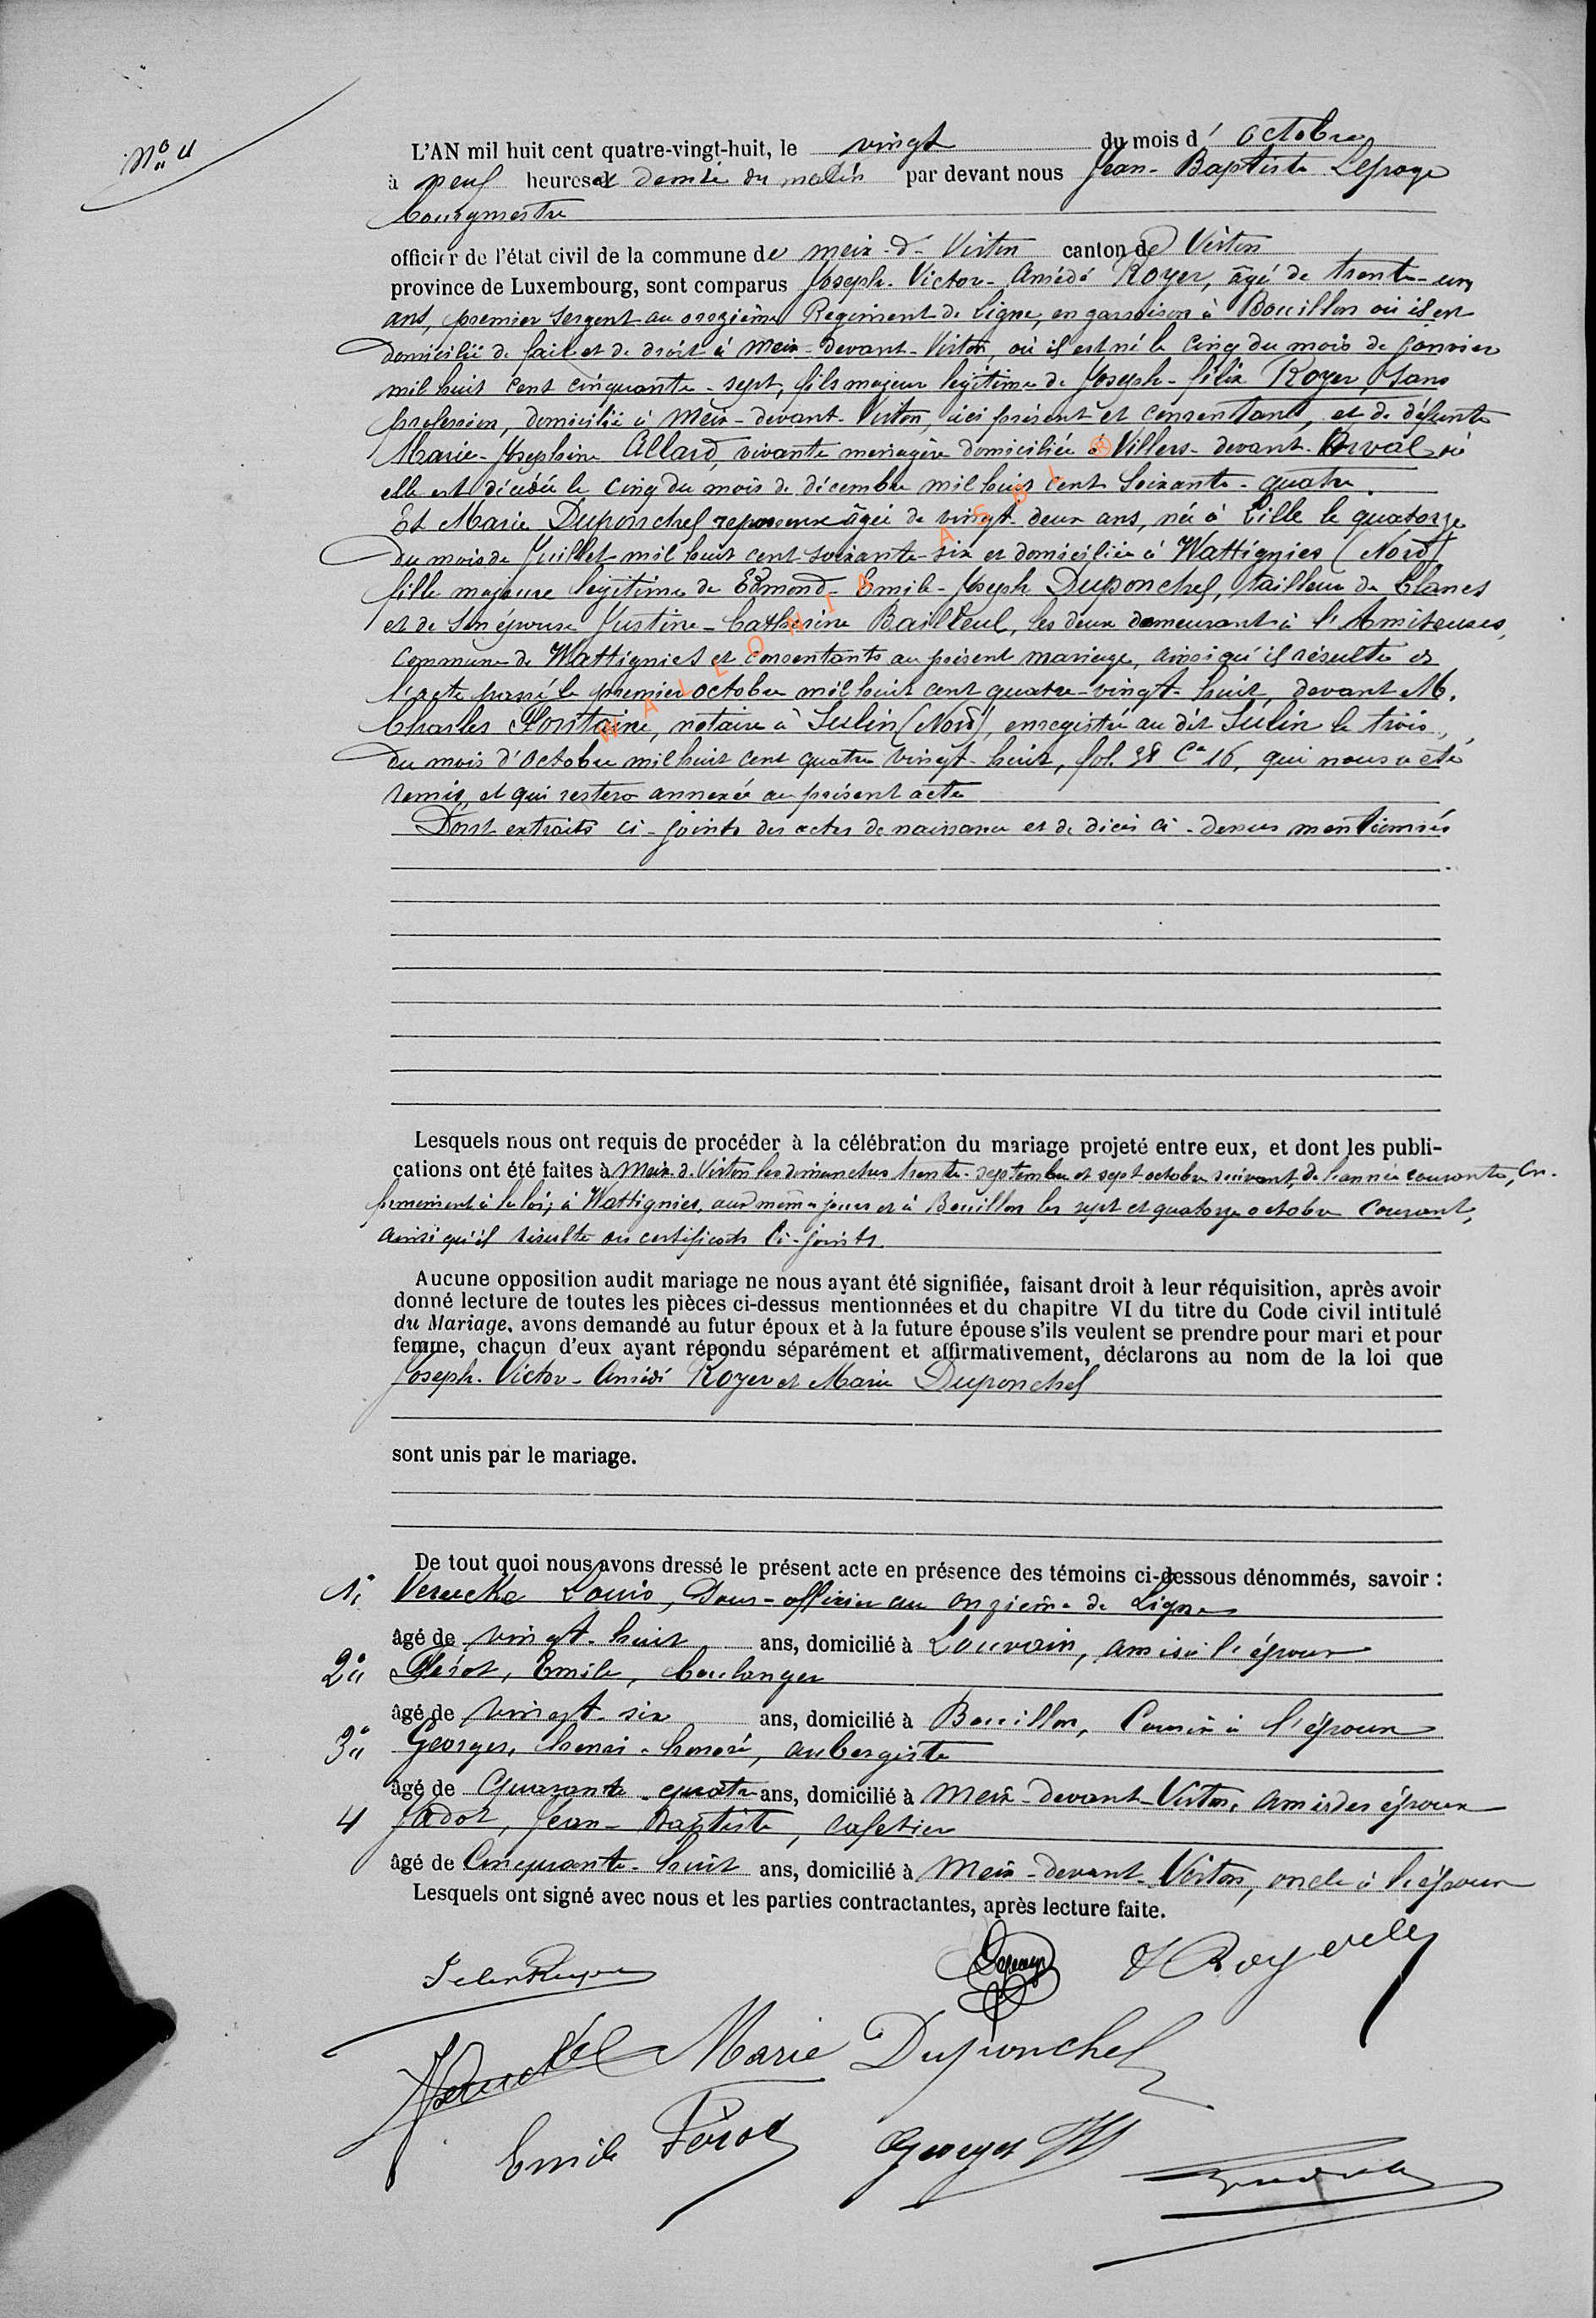 N° 4
L'AN mil huit cent quatre-vingt-huit, le vingt du mois d' octobre
à neuf heures et demie du matin par devant nous Jean-Baptiste Lepage
bourgmestre
officier de l'état civil de la commune de Meix-d-Virton canton de Virton
province de Luxembourg, sont comparus Joseph-Victor-Amédé Royer, âgé de trente-un
ans, premier sergent au onzième Regiment de Ligne, en garnison à Bouillon où il est
domicilié de fait et de droit à Meix-devant-Virton, où il est né le cinq du mois de janvier
mil huit cent cinquante-sept, fils majeur légitime de Joseph-félix Royer, sans
profession, domicilié à Meix-devant-Virton, ici présent et consentant, et de défunte
Marie-Josephine Allard, vivante menagère domiciliée à Villers-devant-Orval où
elle est décédée le cinq du mois de décembre mil huit cent soixante-quatre.
Et Marie Duponchel repasseuse âgée de vingt-deux ans, née à Lille le quatorze
du mois de Juillet mil huit cent soixante-six et domiciliée à Wattignies (Nord)
fille majeure légitime de Edmond-Emile-Joseph Duponchel, tailleur de blancs
et de son épouse Justine-Catherine Bailleul, les deux demeurant à l'
commune de Wattignies et consentants au présent mariage, ainsi qu'il résulte de
l'acte passé le premier octobre mil huit cent quatre-vingt-huit, devant M.
Charles Fontaine, notaire à Seclin (Nord), enregistré au dit Seclin le trois
du mois d'octobre mil huit cent quatre vingt-huit, fol. 38 Ce 16, qui nous a été
remis et qui restera annexée au présent acte
Dont extraits ci-joints des actes de naissance et de décès ci-dessus mentionnés
WALLONIA ASBL
Lesquels nous ont requis de procéder à la célébration du mariage projeté entre eux, et dont les publi-
cations ont été faites à Meix-d-Virton les dimanches trente septembre et sept octobre suivant, de l'année courante, con-
formément à la loi; à Wattignies, aux mêmes jours et à Bouillon les sept et quatorze octobre courant,
ainsi qu'il résulte des certificats ci-joints
Aucune opposition audit mariage ne nous ayant été signifiée, faisant droit à leur réquisition, après avoir
donné lecture de toutes les pièces ci-dessus mentionnées et du chapitre VI du titre du Code civil intitulé
du Mariage, avons demandé au futur époux et à la future épouse s'ils veulent se prendre pour mari et pour
femme, chacun d'eux ayant répondu séparément et affirmativement, déclarons au nom de la loi que
Joseph-Victor-Amédé Royer et Marie Duponchel
sont unis par le mariage.
De tout quoi nous avons dressé le présent acte en présence des témoins ci-dessous dénommés, savoir :
1° Louis, sous-officier au onzième de Ligne
âgé de vingt-huit ans, domicilié à Louvain, ami à l'époux
2° Pérot, Emile, boulanger
âgé de vingt-six ans, domicilié à Bouillon, Cousin à l'époux
3° Georges, henri-honoré, aubergiste
âgé de Quarante-quatre ans, domicilié à Meix-devant-Virton, ami des époux
4 Jadot, Jean-Baptiste, cafetier
âgé de Cinquante-huit ans, domicilié à Meix-devant-Virton, oncle à l'époux
Lesquels ont signé avec nous et les parties contractantes, après lecture faite.
Marie Duponchel
Emile Pérot Georges HH